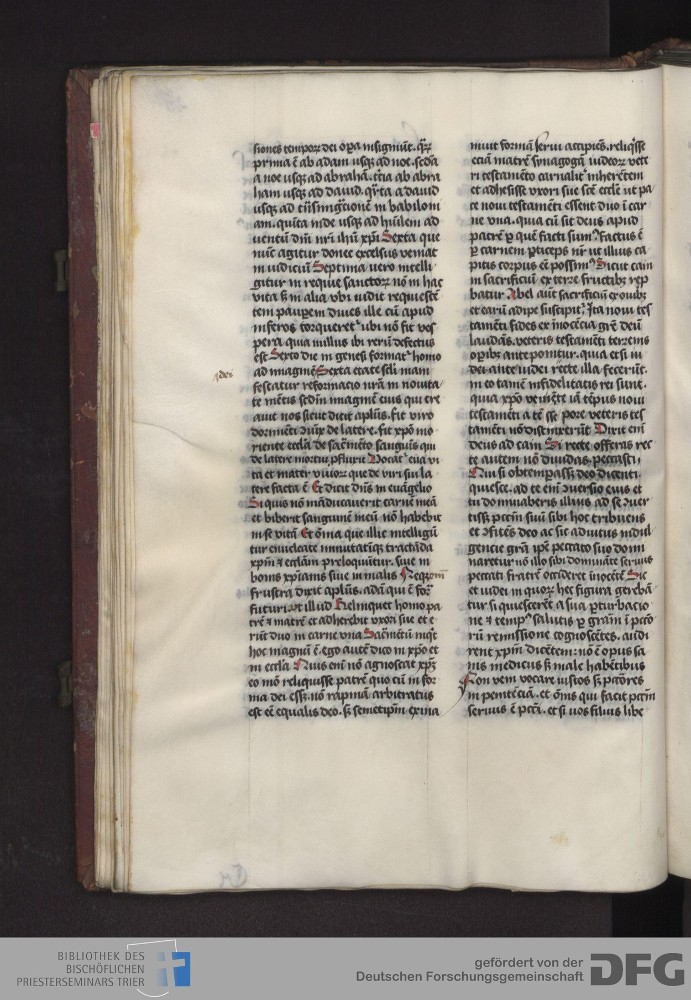 siones tempoꝝ dei oꝑa insigniūt. qͣꝝ
prima ē ab adam usqꝫ ad noe. scda
a noe usqꝫ ad abrahā. tͨia ab abra
ham usqꝫ ad dauid. qͣrta a dauid
usqꝫ ad tͣnsmigͣtionē in babiloni
am. quīta inde usqꝫ ad hūilem ad
uentū dnī nrī ihū xpī Sexta que
nūc agitur donec excelsus veniat
in iudiciū Septima uero intelli
gitur in requie sanctoꝝ nō in hac
vita sꝫ in alia vbi uidit requiescē
tem pauꝑem diues ille cū apud
inferos torqueretͬ ubi nō fit ves
pera quia nullus ibi rerū defectus
est Sexto die in genesi formatͬ homo
ad imaginē Sexta etate scli mani
festatur reformacio nrā in nouita
te mētis scdm imaginē eius qui cre
auit nos sicut dicit apl̄us. fit viro
dormiēti ɔiux de latere. fit xpō mo
riente eccl̄a de sacͣmēto sanguīs qui
de latere mortui ꝓfluxit Vocatͬ eua vi
ta et mater viuoꝝ que de viri sui la
tere facta ē Et dicit dn̄s in euāgelio
Si quis nō māducauerit carnē meā
et biberit sanguinē meū nō habebit
in se vitā Et oīa que illic intelligū
tur enucleate minutatīqꝫ tractāda
xpm̄ ⁊ eccl̄iam preloquūtur. siue in
bonis xp̄ianis siue in malis Neqꝫ em̄
frustra dixit apl̄us. adā qui ē forͣ
futuri et illud Relinquet homo pa
trē ⁊ matrē et adherebit vxori sue et e
rūt duo in carne vna Sacͣmētū inqͥt
hoc magnū ē. ego autē dico in xpō et
in eccl̄a Quis em̄ nō agnoscat xpm̄
eo mō reliquisse patrē quo cū in for
ma dei essꝫ. nō rapinā arbitratus
est eē equalis deo. sꝫ semetipm̄ exina
ꝗ dei
niuit formā serui accipiēs. reliqͥsse
eciā matrē synagogā iudeoꝝ vete
ri testamēto carnalitͬ inherētem
et adhesisse vxori sue scē eccl̄e ut pa
ce noui testamēti essent duo ī car
ne vna. quia cū sit deus apud
patrē ꝑ quē facti sumꝰ factus ē
ꝑ carnem ꝑticeps nr̄ ut illius ca
pitis corpus eē possimꝰ Sicut cain
in sacrificiū ex terre fructibꝫ rep
batur Abel aūt sacrificiū ex ouibꝫ
et earū adipe suscipitͬ Ita noui tes
tamēti fides ex inocēcia grē deū
laudās. veteris testamēti terrenis
oꝑibꝫ anteponitur. quia etsi iu
dei ante iudei recte illa fecerūt.
in eo tamē infidelitatis rei sunt.
quia xpō veniēte iā tēpus noui
testamēti a tē sse pore veteris tes
tamēti nō distinxerūt Dixit em̄
deus ad cain Si recte offeras rec
te autem nō diuidas. peccasti
Qui si obtemꝑassꝫ deo dicenti.
quiesce. ad te em̄ ɔuersio eius et
tu dominaberis illius ad se ɔuer
tissꝫ pctm̄ suū sibi hoc tribuens
et ɔfitēs deo ac sic adiutus indul
gencie grā. ip̄e peccato suo domi
naretur nō illo sibi domināte seruus
peccati fratrē occideret inocētē Sic
et iudei in quoꝝ hec figura gerebā
tur si quiescerēt a sua ꝑturbacio
ne ⁊ tempꝰ salutis ꝑ grām ī pctō
rū remissione cognoscētes. audi
rent xpm̄ dicētem: nō ē opus sa
nis medicus sꝫ male habētibus
Non veni vocare iustos sꝫ pctōres
in penitēciā. et om̄is qui facit pctm̄
seruus ē pcti. et si uos filius libe
BIBLIOTHEK DES
BISCHÖFLICHEN
PRIESTERSEMINARS TRIER
gefördert von der
Deutschen Forschungsgemeinschaft
DFG